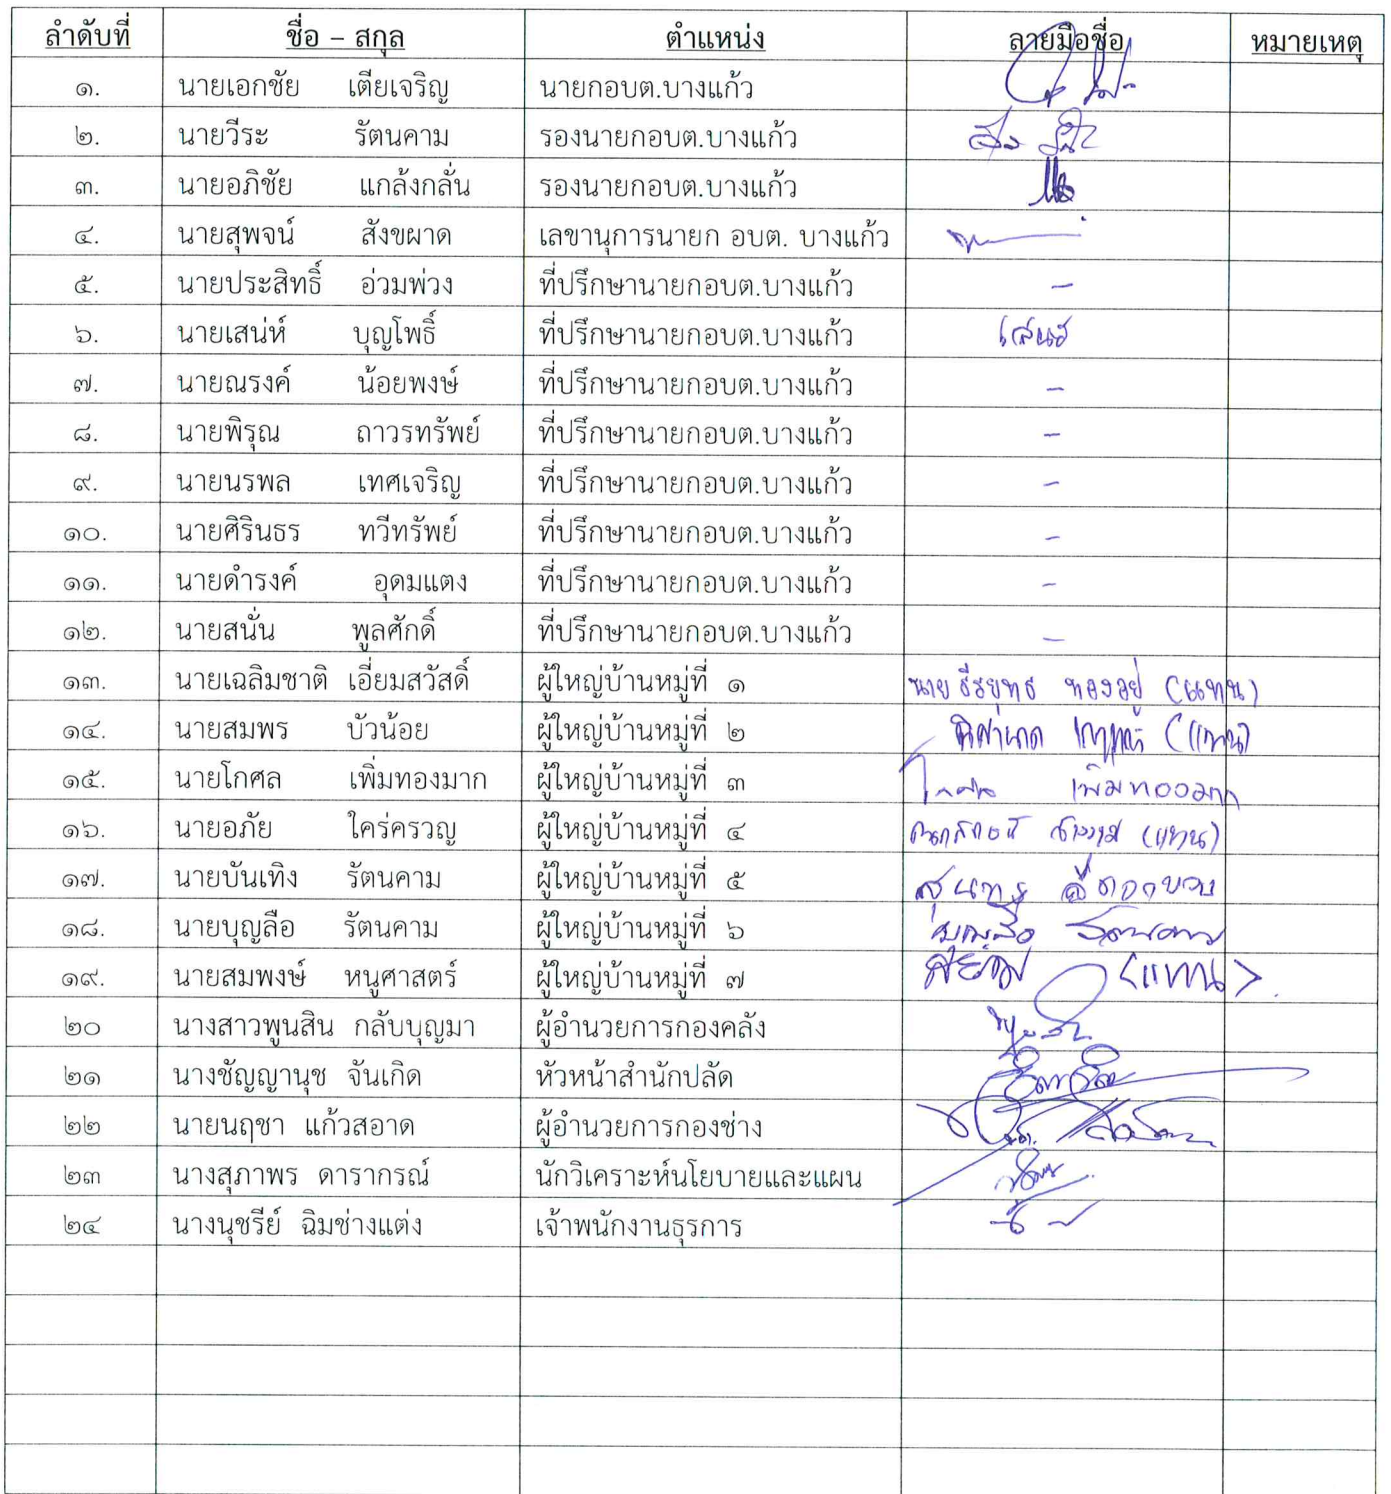 ลำดับที่ ชื่อ – สกุล ตำแหน่ง ลายมือชื่อ หมายเหตุ
๑. นายเอกชัย เตียเจริญ นายกอบต.บางแก้ว
๒. นายวีระ รัตนคาม รองนายกอบต.บางแก้ว
๓. นายอภิชัย แกล้งกลั่น รองนายกอบต.บางแก้ว
๔. นายสุพจน์ สังขผาด เลขานุการนายก อบต. บางแก้ว
๕. นายประสิทธิ์ อ่วมพ่วง ที่ปรึกษานายกอบต.บางแก้ว -
๖. นายเสน่ห์ บุญโพธิ์ ที่ปรึกษานายกอบต.บางแก้ว เสน่ห์
๗. นายณรงค์ น้อยพงษ์ ที่ปรึกษานายกอบต.บางแก้ว -
๘. นายพิรุณ ถาวรทรัพย์ ที่ปรึกษานายกอบต.บางแก้ว -
๙. นายนรพล เทศเจริญ ที่ปรึกษานายกอบต.บางแก้ว -
๑๐. นายศิรินธร ทวีทรัพย์ ที่ปรึกษานายกอบต.บางแก้ว -
๑๑. นายดำรงค์ อุดมแตง ที่ปรึกษานายกอบต.บางแก้ว -
๑๒. นายสนั่น พูลศักดิ์ ที่ปรึกษานายกอบต.บางแก้ว -
๑๓. นายเฉลิมชาติ เอี่ยมสวัสดิ์ ผู้ใหญ่บ้านหมู่ที่ ๑ นาย ธีรยุทธ ทองอยู่ (แทน)
๑๔. นายสมพร บัวน้อย ผู้ใหญ่บ้านหมู่ที่ ๒ (แทน)
๑๕. นายโกศล เพิ่มทองมาก ผู้ใหญ่บ้านหมู่ที่ ๓ โกศล เพิ่มทองมาก
๑๖. นายอภัย ใคร่ครวญ ผู้ใหญ่บ้านหมู่ที่ ๔ (แทน)
๑๗. นายบันเทิง รัตนคาม ผู้ใหญ่บ้านหมู่ที่ ๕
๑๘. นายบุญลือ รัตนคาม ผู้ใหญ่บ้านหมู่ที่ ๖ บุญลือ รัตนคาม
๑๙. นายสมพงษ์ หนูศาสตร์ ผู้ใหญ่บ้านหมู่ที่ ๗ (แทน)
๒๐ นางสาวพูนสิน กลับบุญมา ผู้อำนวยการกองคลัง
๒๑ นางชัญญานุช จันเกิด หัวหน้าสำนักปลัด
๒๒ นายนฤชา แก้วสอาด ผู้อำนวยการกองช่าง
๒๓ นางสุภาพร ดารากรณ์ นักวิเคราะห์นโยบายและแผน
๒๔ นางนุชรีย์ ฉิมช่างแต่ง เจ้าพนักงานธุรการ